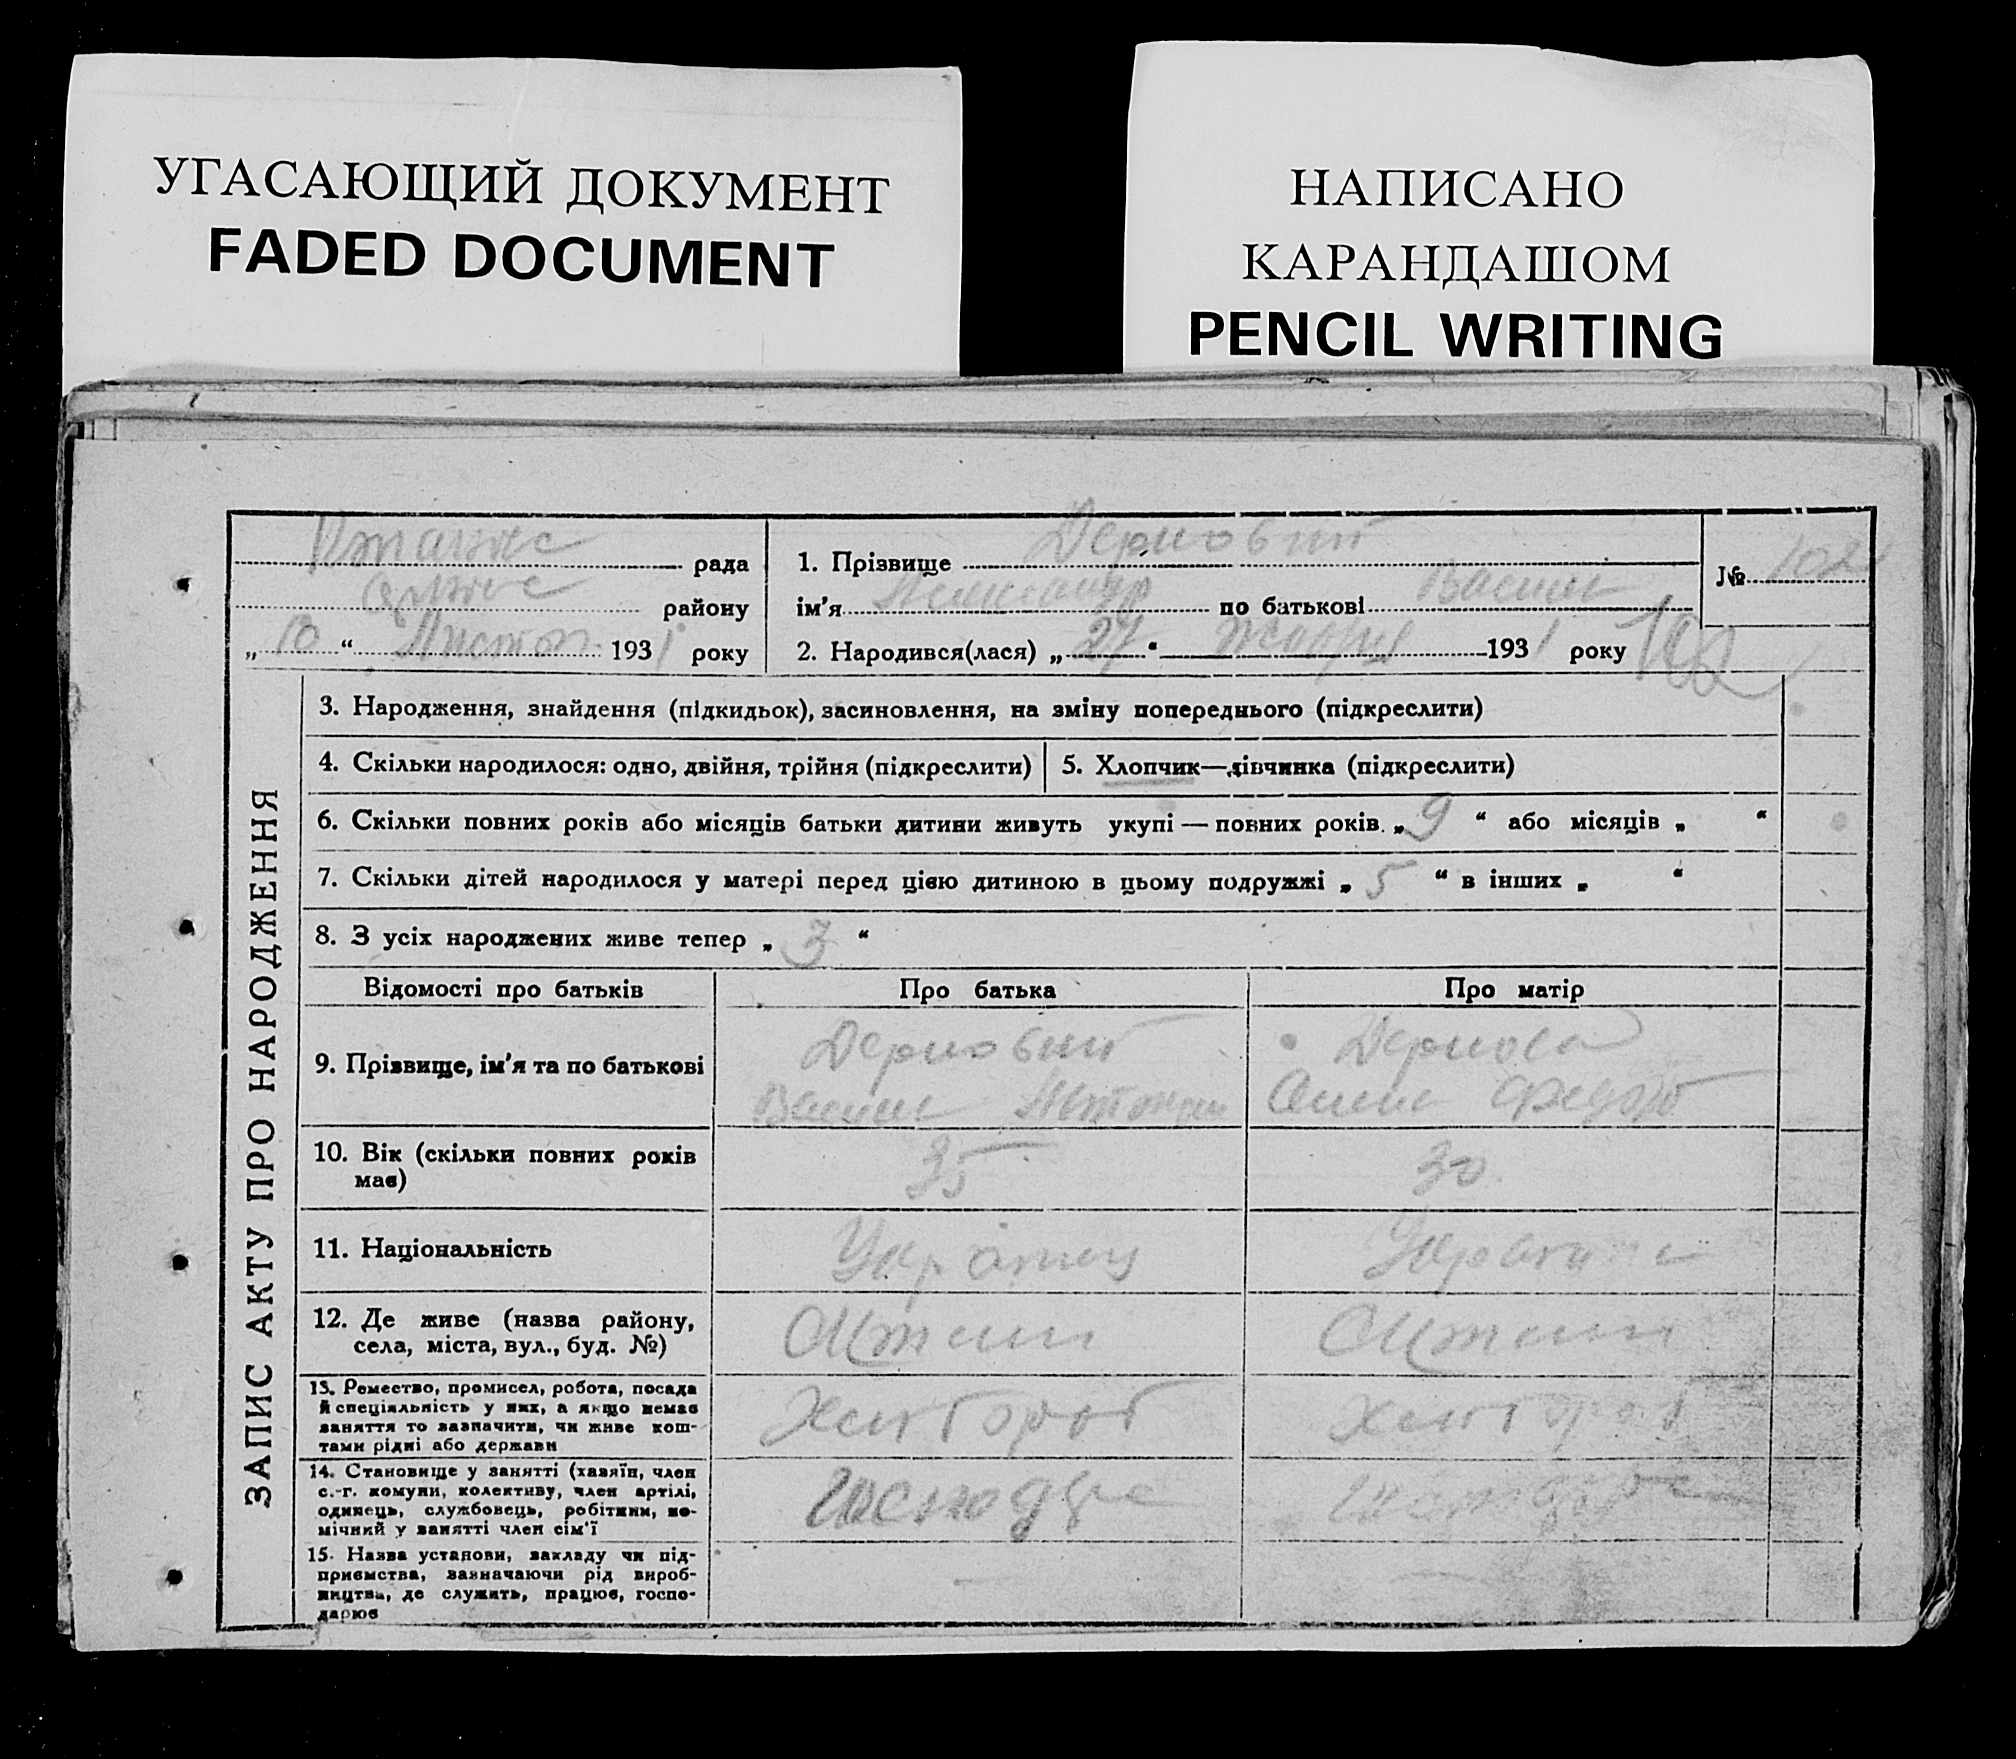 УГАСАЮЩИЙ ДОКУМЕНТ
FADED DOCUMENT
НАПИСАНО
КАРАНДАШОМ
PENCIL WRITING
рада
району
„ 10 “ Листоп. 1931 року
1. Прізвище Дерновий
ім'я Александр по батькові Васил
2. Народився(лася) „ 27 “ Жовтня 1931 року
№ 102
102
ЗАПИС АКТУ ПРО НАРОДЖЕННЯ
3. Народження, знайдення (підкидьок), засиновлення, на зміну попереднього (підкреслити)
4. Скільки народилося: одно, двійня, трійня (підкреслити)
5. Хлопчик—дівчинка (підкреслити)
6. Скільки повних років або місяців батьки дитини живуть укупі — повних років „ 9 “ або місяців „ “
7. Скільки дітей народилося у матері перед цією дитиною в цьому подружжі „ 5 “ в інших „ “
8. З усіх народжених живе тепер „ 3 “
Відомості про батьків
Про батька
Про матір
9. Прізвище, ім'я та по батькові
Дерновий
Васил Антонов
Дернова
Федор
10. Вік (скільки повних років
має)
35
30
11. Національність
Українец
Українка
12. Де живе (назва району,
села, міста, вул., буд. №)
13. Ремество, промисел, робота, посада
й спеціяльність у них, а якщо немає
заняття то зазначити, чи живе кош-
тами рідні або держави
Хлібороб
Хлібороб
14. Становище у занятті (хазяїн, член
с.-г. комуни, колективу, член артілі,
одинець, службовець, робітник, по-
мічний у занятті член сім'ї
15. Назва установи, закладу чи під-
приємства, зазначаючи рід вироб-
ництва, де служить, працює, госпо-
дарює